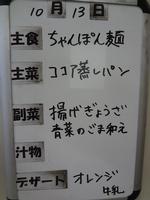 10月13日
主食 ちゃんぽん麺
主菜 ココア蒸しパン
副菜 揚げぎょうざ
青菜のごま和え
汁物
デザート オレンジ
牛乳